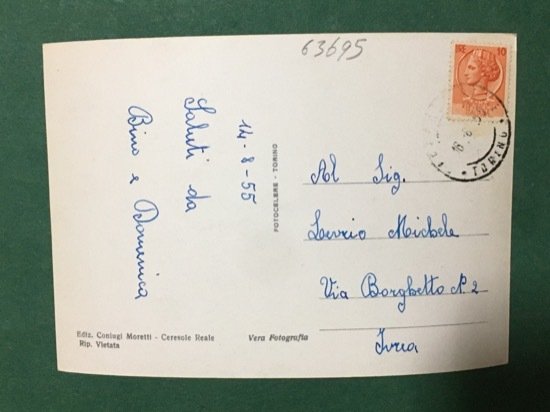 63695
14-8-55
Saluti da
Bino e Domenica
FOTOCELERE - TORINO
Al Sig.
Levrio Michele
Via Borghetto N. 2
Ivrea
Ediz. Coniugi Moretti - Ceresole Reale
Rip. Vietata
Vera Fotografia
10
TORINO